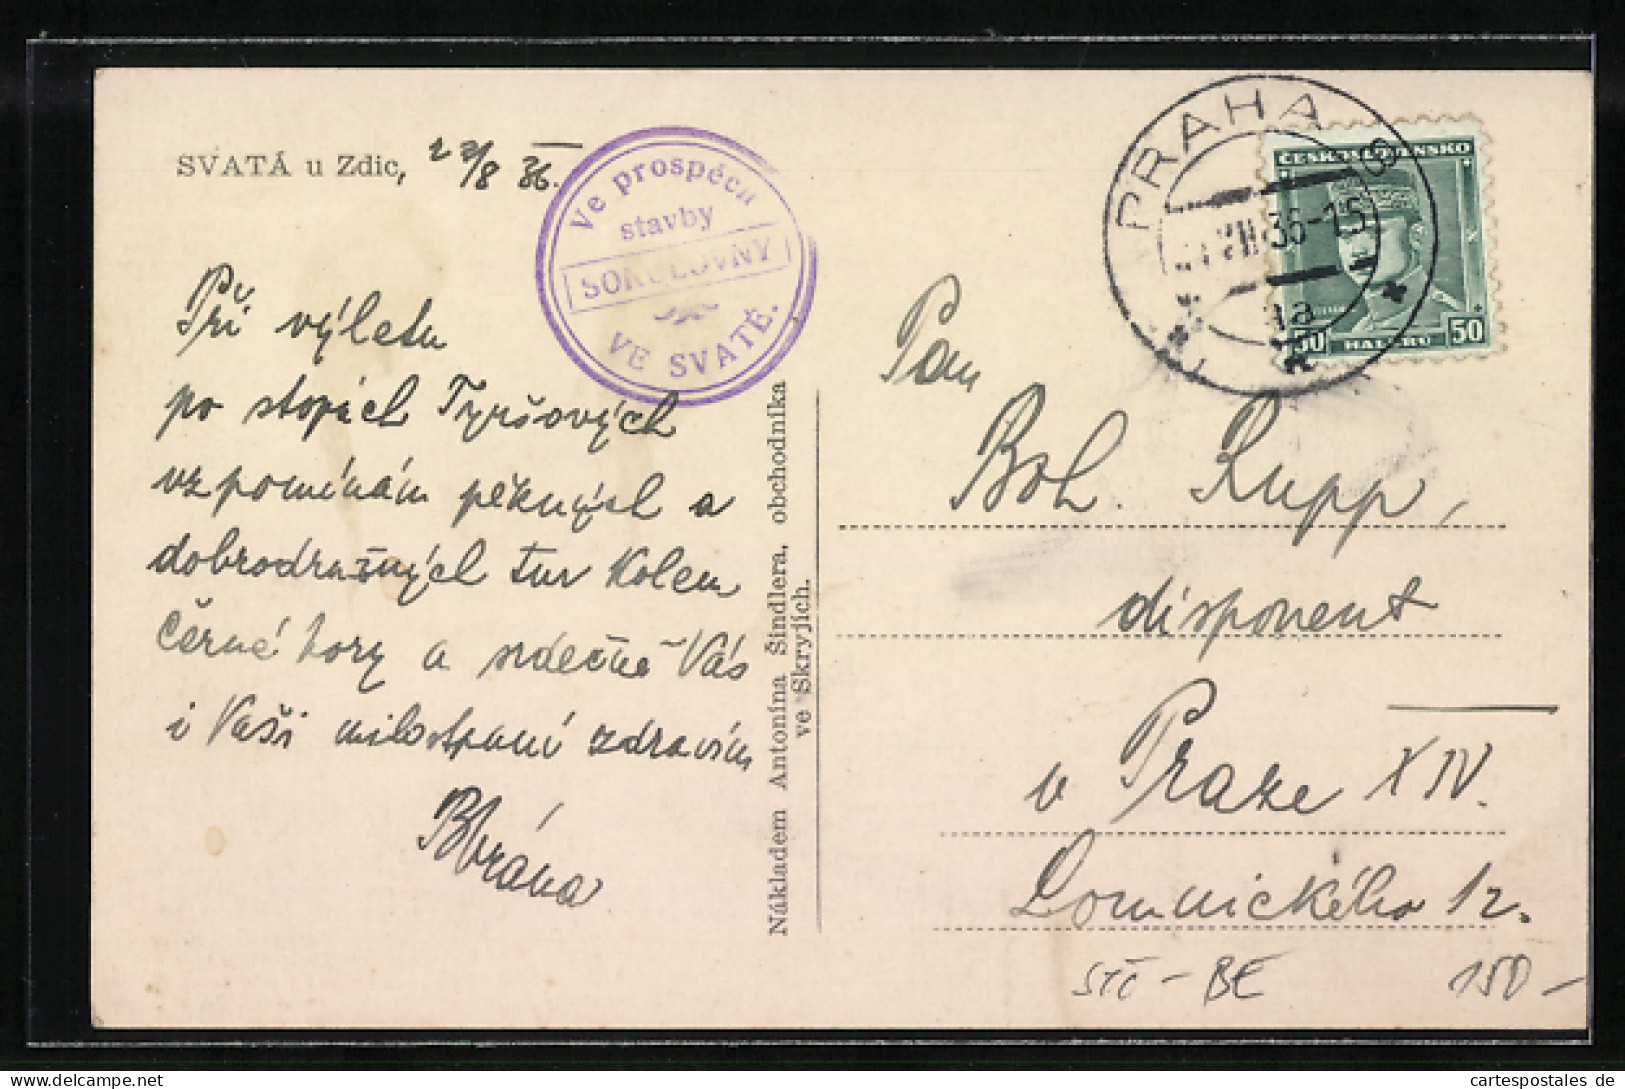 SVATÁ u Zdic, 22/8 36.
Ve prospěch
stavby
SOKOLOVNY
VE SVATÉ.
Při výletu
po stopách Tyršových
vzpomínám pěkných a
dobrodružných tur kolem
Černé hory a srdečně Vás
i Vaši milostpaní zdravím
BVrána
Nákladem Antonína Šindlera, obchodníka
ve Skryjích.
PRAHA 8
VIII 36-15
ČESKOSLOVENSKO
50 HALÉŘŮ 50
Pan
Boh. Rupp,
disponent
v Praze XIV.
Lomnického 12.
STČ - BE 150 -
cartespostales de